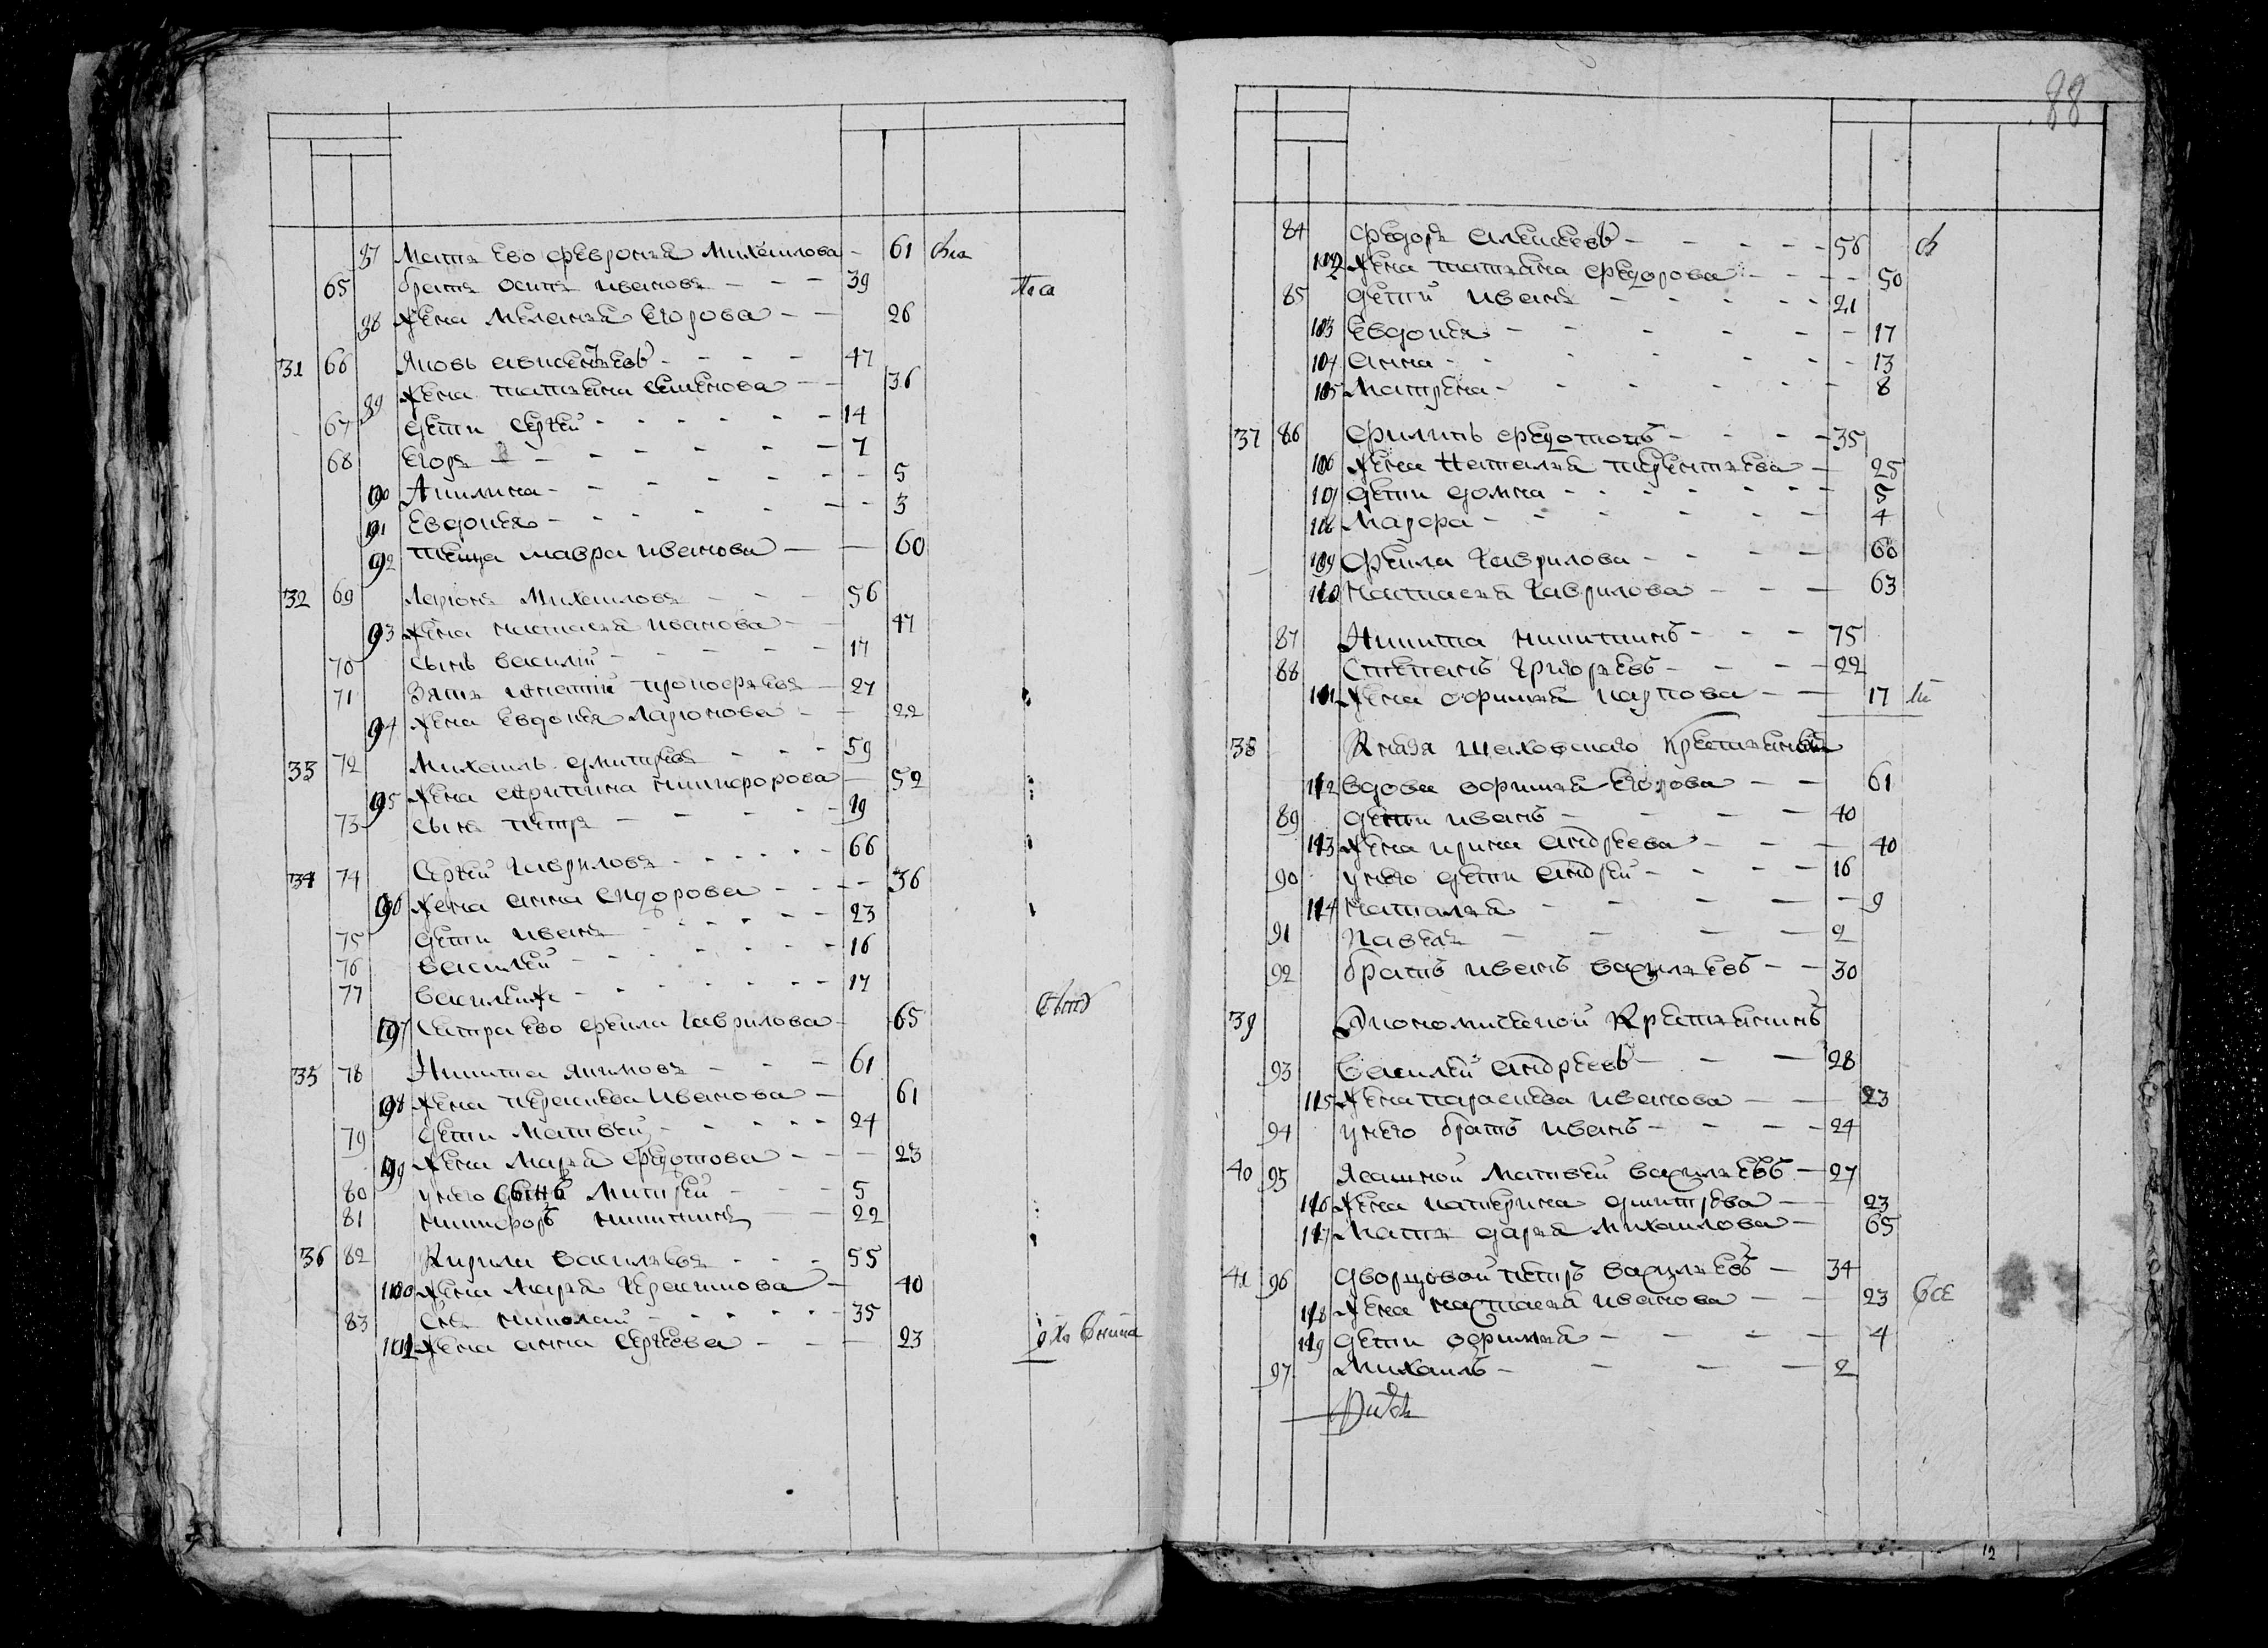 88
87 Мать ево Февронья Михаилова - 61
65 братъ осипъ ивановъ - - - 39
88 жена Меланья Егорова - - 26
31 66 Яковъ авксентьевъ - - - - 47
89 жена татьяна семенова - - 36
67 дети Сергей - - - - - - 14
68 Егоръ - - - - - - 7
90 Акилина - - - - - - - 5
91 Евдокея - - - - - - - 3
92 теща мавра иванова — — 60
32 69 Ларионъ Михаиловъ - - - 56
93 жена настасья иванова - - 47
70 сынъ василий - - - - - 17
71 Зять игнатий прокофьевъ - 27
94 жена Евдокея Ларионова - - 22
33 72 Михаилъ дмитревъ - - - 59
95 жена никифорова - 52
73 сынъ петръ - - - - 19
34 74 Сергей Гавриловъ - - - - - 66
96 жена анна сидорова - - - - 36
75 дети иванъ - - - - - - 23
76 василей - - - - - - 16
77 василейже - - - - - - - 17
97 Сестра ево фекла гаврилова - 65
35 78 Никита якимовъ - - - 61
98 жена параскева иванова - 61
79 дети Матвей - - - - - 24
99 жена Марья Федотова - - - 23
80 унего сынъ Митрей - - - 5
81 никифоръ никитинъ - - 22
36 82 Кирила васильевъ - - - 55
100 жена Марья Герасимова - 40
83 Сынъ николай - - - - - 35
101 жена анна Сергеева - - - 23
84 Федоръ алексеевъ - - - - - 56
102 жена татьяна Федорова - - - - 50
85 дети иванъ - - - - - 21
103 Евдокея - - - - - - 17
104 анна - - - - - - 13
105 Матрена - - - - - - 8
37 86 Филипъ Федотовъ - - - - 35
106 жена Наталья терентьева - 25
107 дети домна - - - - - - 5
108 - - - - - - 4
109 фекла Гаврилова - - - - 60
110 настасья Гаврилова - - - 63
87 Никита никитинъ - - - 75
88 Степанъ Григорьевъ - - - 22
111 жена офимья карпова - - 17
38 Князя шаховского Крестьяне
112 вдова офимья Егорова - - 61
89 дети иванъ - - - - 40
113 жена ирина андреева - - - 40
90 унего дети андрей - - - - 16
114 наталья - - - - - 9
91 павелъ - - - - 2
92 братъ иванъ васильевъ - - 30
39 Экономической Крестьянинъ
93 Василей андреевъ - - - 28
115 жена параскева иванова - - 23
94 унего братъ иванъ - - - - 24
40 95 Ясашной Матвей васильевъ - 27
116 жена катерина дмитрева - - 23
117 мать дарья михаилова - 65
41 96 дворцовой петръ васильевъ - 34
118 жена настасья иванова - - 23
119 дети офимья - - - - 4
97 Михаилъ - - - - 2